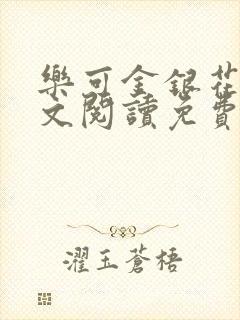 樂可金銀花
文閱讀免費
濯玉蒼梧